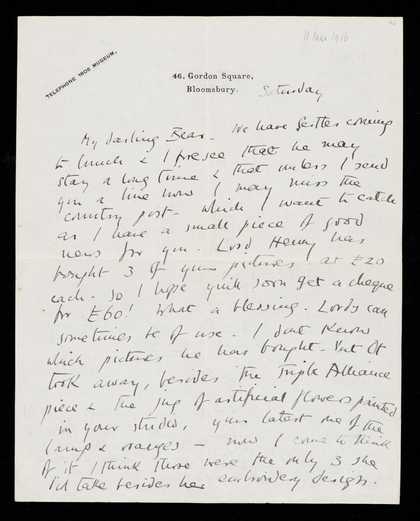 TELEPHONE 1608 MUSEUM.
46, Gordon Square,
Bloomsbury.
Saturday
My darling Bear. We have Gertler coming
to lunch & I foresee that he may
stay a long time & that unless I send
you a line now I may miss the
country post - which I want to catch
as I have a small piece of good
news for you. Lord Henry has
bought 3 of your pictures at £20
each. So I hope you'll soon get a cheque
for £60! What a blessing. Lords can
sometimes be of use. I dont know
which pictures he has bought. But
took away, besides the Triple Alliance
piece & the jug of artificial flowers painted
in your studio, your latest one of the
lamp & oranges - now I come to think
of it I think those were the only 3 she
did take besides her embroidery designs.